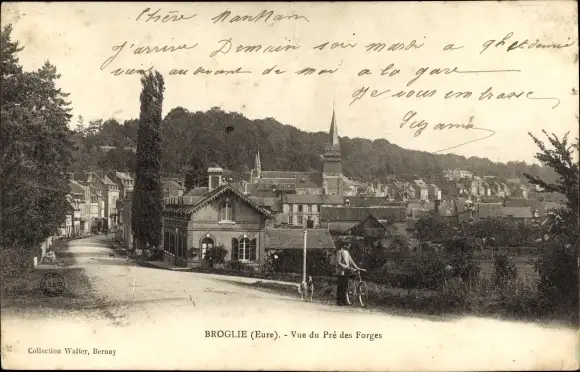 Chère Manman
J'arrive Demain soir mardi a 9h et demie
vien au devant de moi a la gare
Je vous embrasse
BROGLIE (Eure). - Vue du Pré des Forges
Collection Walter, Bernay